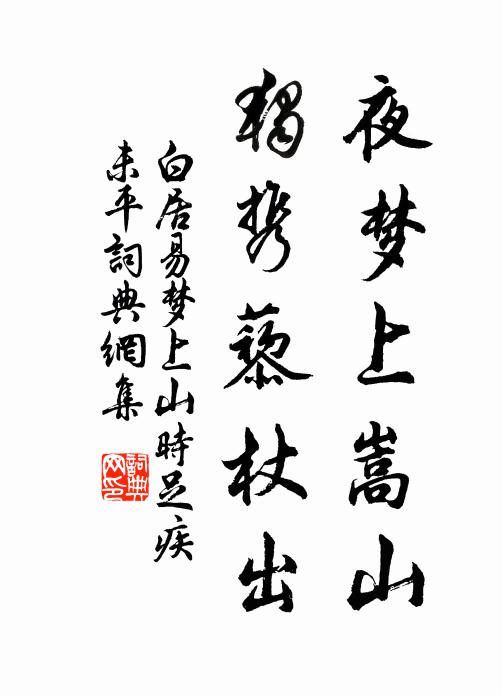 夜梦上嵩山
独携藜杖出
白居易梦上山時足疾
未平詞典網集
詞典
网印